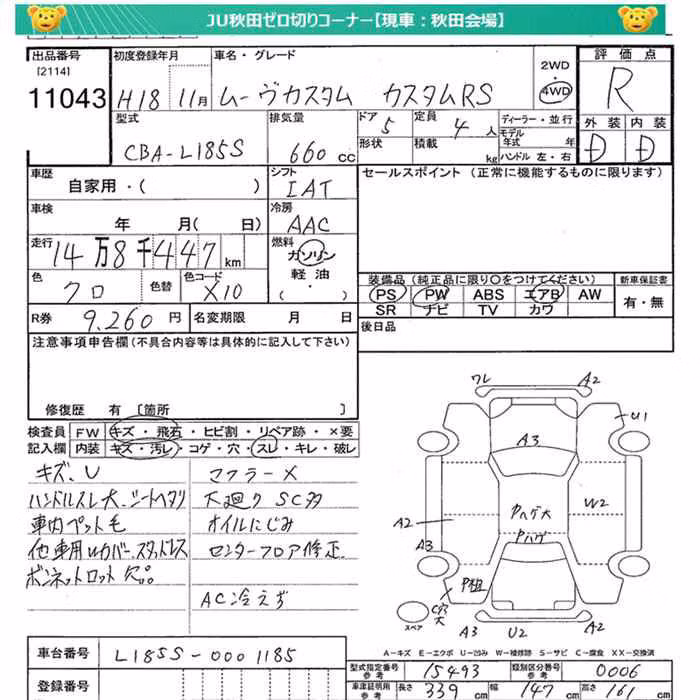 JU秋田ゼロ切りコーナー【現車：秋田会場】
出品番号 初度登録年月 車名・グレード 2WD 評価点
[2114]
11043 H18 11月 ムーヴカスタム カスタムRS 4WD R
型式 排気量 ドア 定員 ディーラー・並行 外装 内装
CBA-L185S 660 cc 5 4 人 モデル年式 年 D D
形状 積載 kg ハンドル 左・右
車歴 シフト セールスポイント (正常に機能するものに限ります)
自家用・( ) IAT
車検 冷房
年 月( 日) AAC
走行 燃料
14万8千447 km ガソリン
軽油
(・)
色 色替 色コード 装備品 (純正品に限り○をつけてください) 新車保証書
クロ X10 PS PW ABS エアB AW 有・無
SR ナビ TV カワ
R券 9,260 円 名変期限 月 日 後日品
注意事項申告欄(不具合内容等は具体的に記入して下さい)
修復歴 有 [箇所 ]
検査員 FW キズ・飛石・ヒビ割・リペア跡・×要
記入欄 内装 キズ・汚レ・コゲ・穴・スレ・キレ・破レ
キズ、U マフラーX
ハンドルスレ大、シートヘタリ 下廻り SC多
車内ペット毛 オイルにじみ
センターフロア修正
AC冷えず
ワレ A2
U1
A3
W2
A2
A3
P粗
スペア
A3 U2 A2
A－キズ E－エクボ U－凹み W－補修跡 S－サビ C－腐食 XX－交換済
車台番号 L185S-0001185
型式指定番号 参考 15493 類別区分番号 参考 0006
登録番号 車庫証明用 参考 長さ 339 cm 幅 147 cm 高さ 161 cm